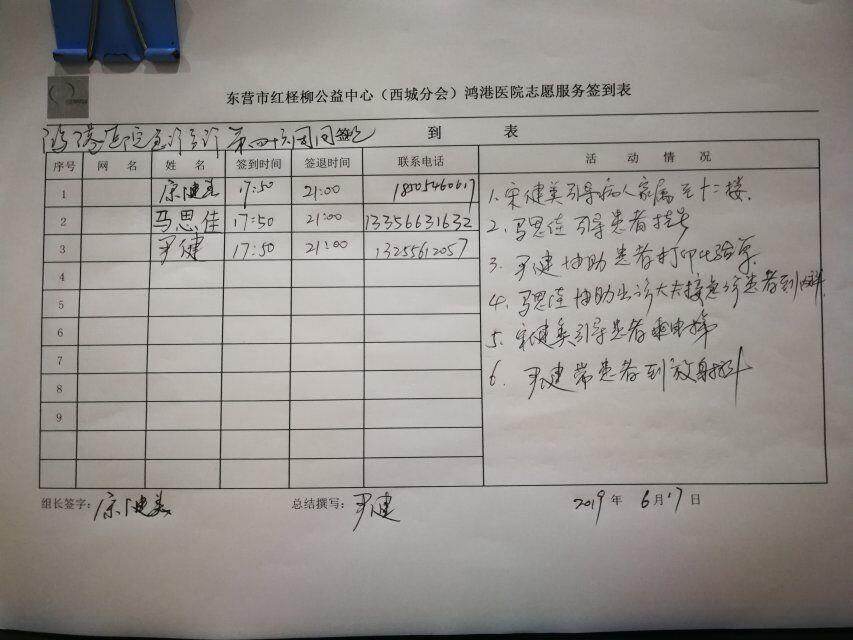 东营市红柽柳公益中心（西城分会）鸿港医院志愿服务签到表
鸿港医院急诊分诊 第四十六周周 到 表
序号 网 名 姓 名 签到时间 签退时间 联系电话 活 动 情 况
1 宋健美 17:50 21:00 18505460617
2 马思佳 17:50 21:00 13356631632
3 尹健 17:50 21:00 13255612057
4
5
6
7
8
9
1. 宋健美引导病人家属至十二楼.
2. 马思佳引导患者挂号
3. 尹健协助患者打印化验单
4. 马思佳协助出诊大夫接急诊患者到
5. 宋健美引导患者乘电梯
6. 尹健带患者到放射科
组长签字：宋健美 总结撰写：尹健 2019 年 6 月 17 日